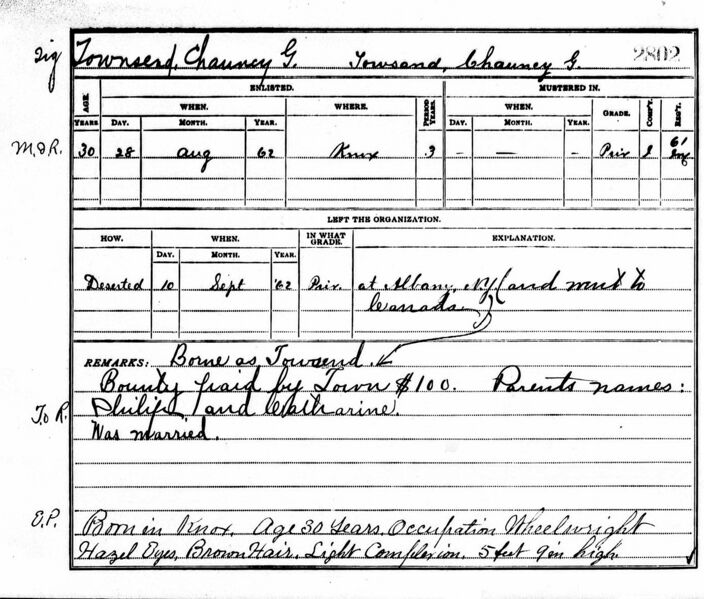 Sig
Townsend, Chauncey G. Towsand, Chauncey G. 2802
ENLISTED. MUSTERED IN.
AGE. WHEN. WHERE. PERIOD YEARS. WHEN. GRADE. COMP'Y. REG'T.
YEARS DAY. MONTH. YEAR. DAY. MONTH. YEAR.
M.&R. 30 28 Aug 62 Knox 3 – — – Priv I 61 Inf
LEFT THE ORGANIZATION.
HOW. WHEN. IN WHAT GRADE. EXPLANATION.
DAY. MONTH. YEAR.
Deserted 10 Sept '62 Priv. at Albany, NY (and went to
Canada)
REMARKS: Borne as Towsend.
Bounty paid by Town $100. Parents names:
To R. Philip and Catharine.
Was married.
E.P. Born in Knox. Age 30 Years. Occupation Wheelwright
Hazel Eyes, Brown Hair. Light Complexion. 5 feet 9 in high.